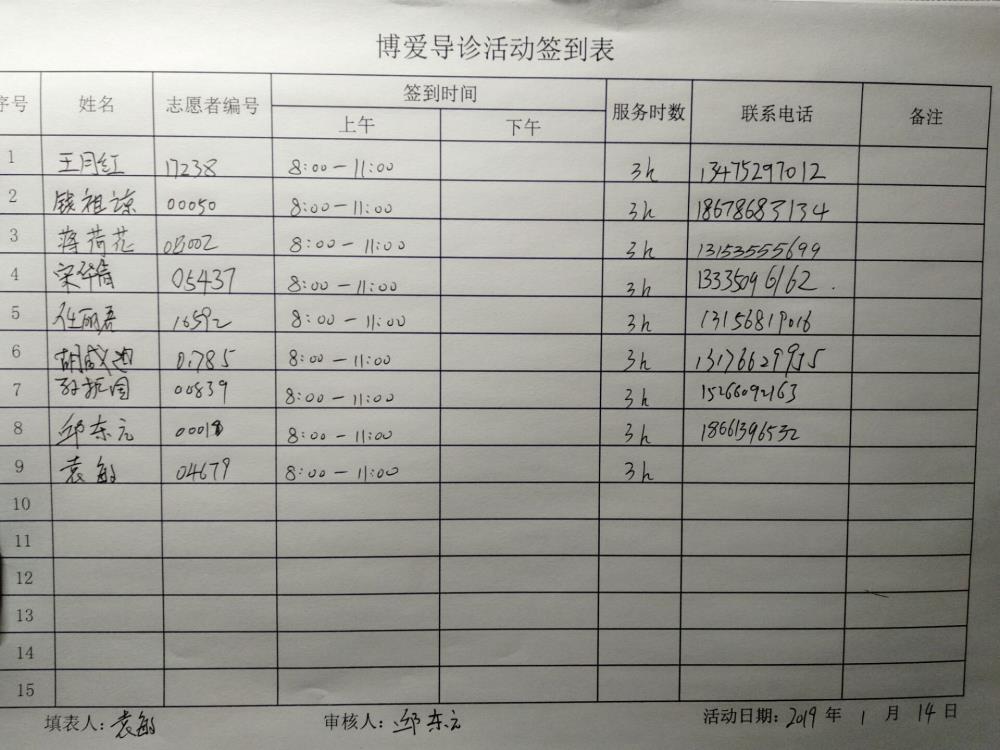 博爱导诊活动签到表
序号 姓名 志愿者编号 签到时间 服务时数 联系电话 备注
上午 下午
1 王月红 17238 8:00-11:00 3h 13475297012
2 钱祖谅 00050 8:00-11:00 3h 18678683134
3 蒋荷花 05002 8:00-11:00 3h 13153555699
4 宋华清 05437 8:00-11:00 3h 13335096162
5 任丽君 16592 8:00-11:00 3h 13156819016
6 胡成 01785 8:00-11:00 3h
7 孙振国 00839 8:00-11:00 3h 15266092163
8 邱东元 00018 8:00-11:00 3h 18661396532
9 袁敏 04679 8:00-11:00 3h
10
11
12
13
14
15
填表人:袁敏 审核人:邱东元 活动日期:2019年1月14日